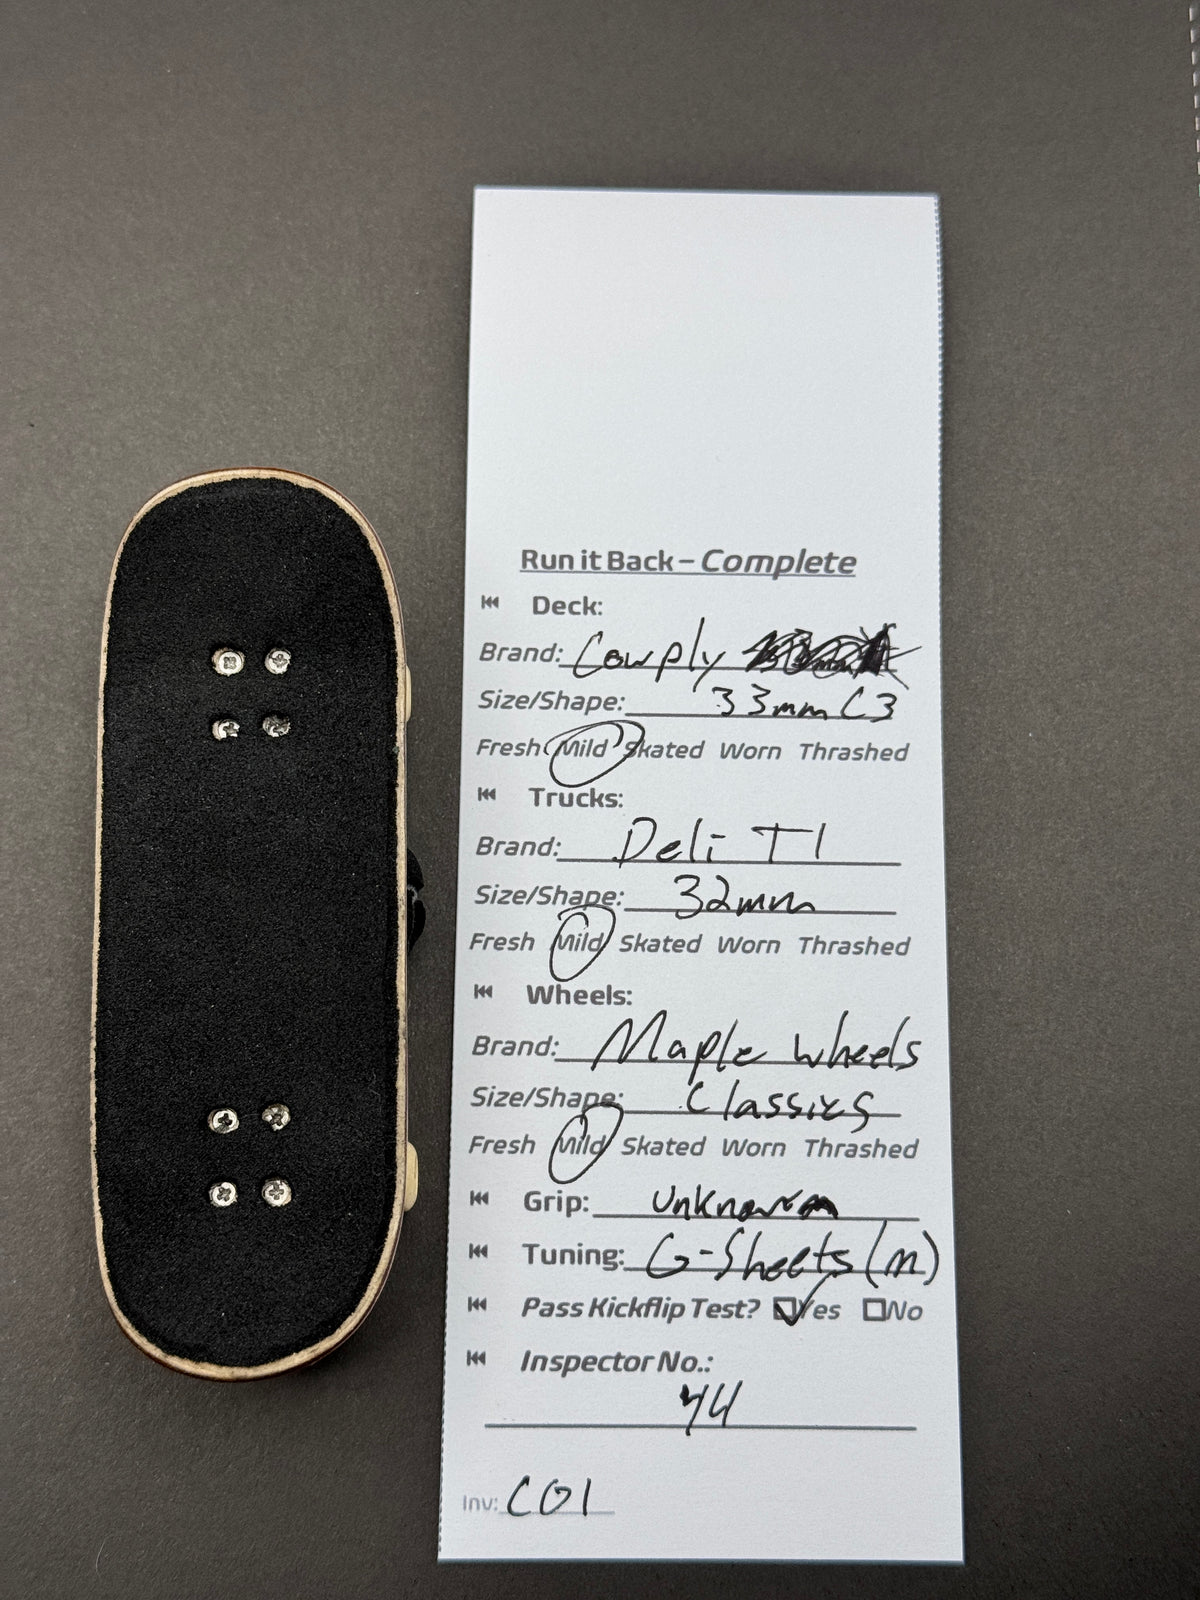 Run it Back – Complete
Deck:
Brand: Cowply
Size/Shape: 33mm C3
Fresh Mild Skated Worn Thrashed
Trucks:
Brand: Deli T1
Size/Shape: 32mm
Fresh Mild Skated Worn Thrashed
Wheels:
Brand: Maple Wheels
Size/Shape: Classics
Fresh Mild Skated Worn Thrashed
Grip: Unknown
Tuning: G-Sheets (m)
Pass Kickflip Test? Yes No
Inspector No.:
44
Inv: CG1